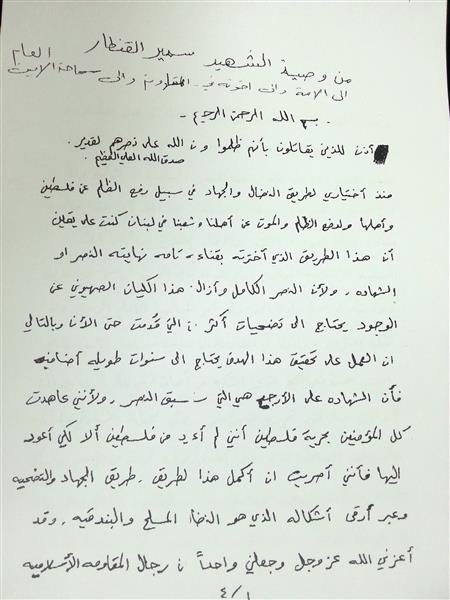 من وصية الشهيد سمير القنطار
الى الامة والى اخوته في المقاومة والى سماحة الامين العام
بسم الله الرحمن الرحيم -
أذن للذين يقاتلون بأنهم ظلموا وان الله على نصرهم لقدير.
صدق الله العلي العظيم
منذ أختياري لطريق النضال والجهاد في سبيل رفع الظلم عن فلسطين
وأهلها ولدفع الظلم والموت عن أهلنا وشعبنا في لبنان كنت على يقين
أن هذا الطريق الذي أخترته بقناعه تامه نهايته النصر او
الشهاده , ولأن النصر الكامل وأزالة هذا الكيان الصهيوني عن
الوجود يحتاج الى تضحيات أكثر من التي قدمت حتى الأن وبالتالي
ان العمل على تحقيق هذا الهدف يحتاج الى سنوات طويله أضافيه
فأن الشهاده على الأرجح هي التي ستسبق النصر , ولأنني عاهدت
كل المؤمنين بحرية فلسطين أنني لم أعد من فلسطين ألا لكي أعود
إليها فأنني أصريت ان أكمل هذا الطريق , طريق الجهاد والتضحيه
وعبر أرقى أشكاله الذي هو النضال المسلح والبندقيه , وقد
أعزني الله عز وجل وجعلني واحداً من رجال المقاومه الأسلاميه
٤/١